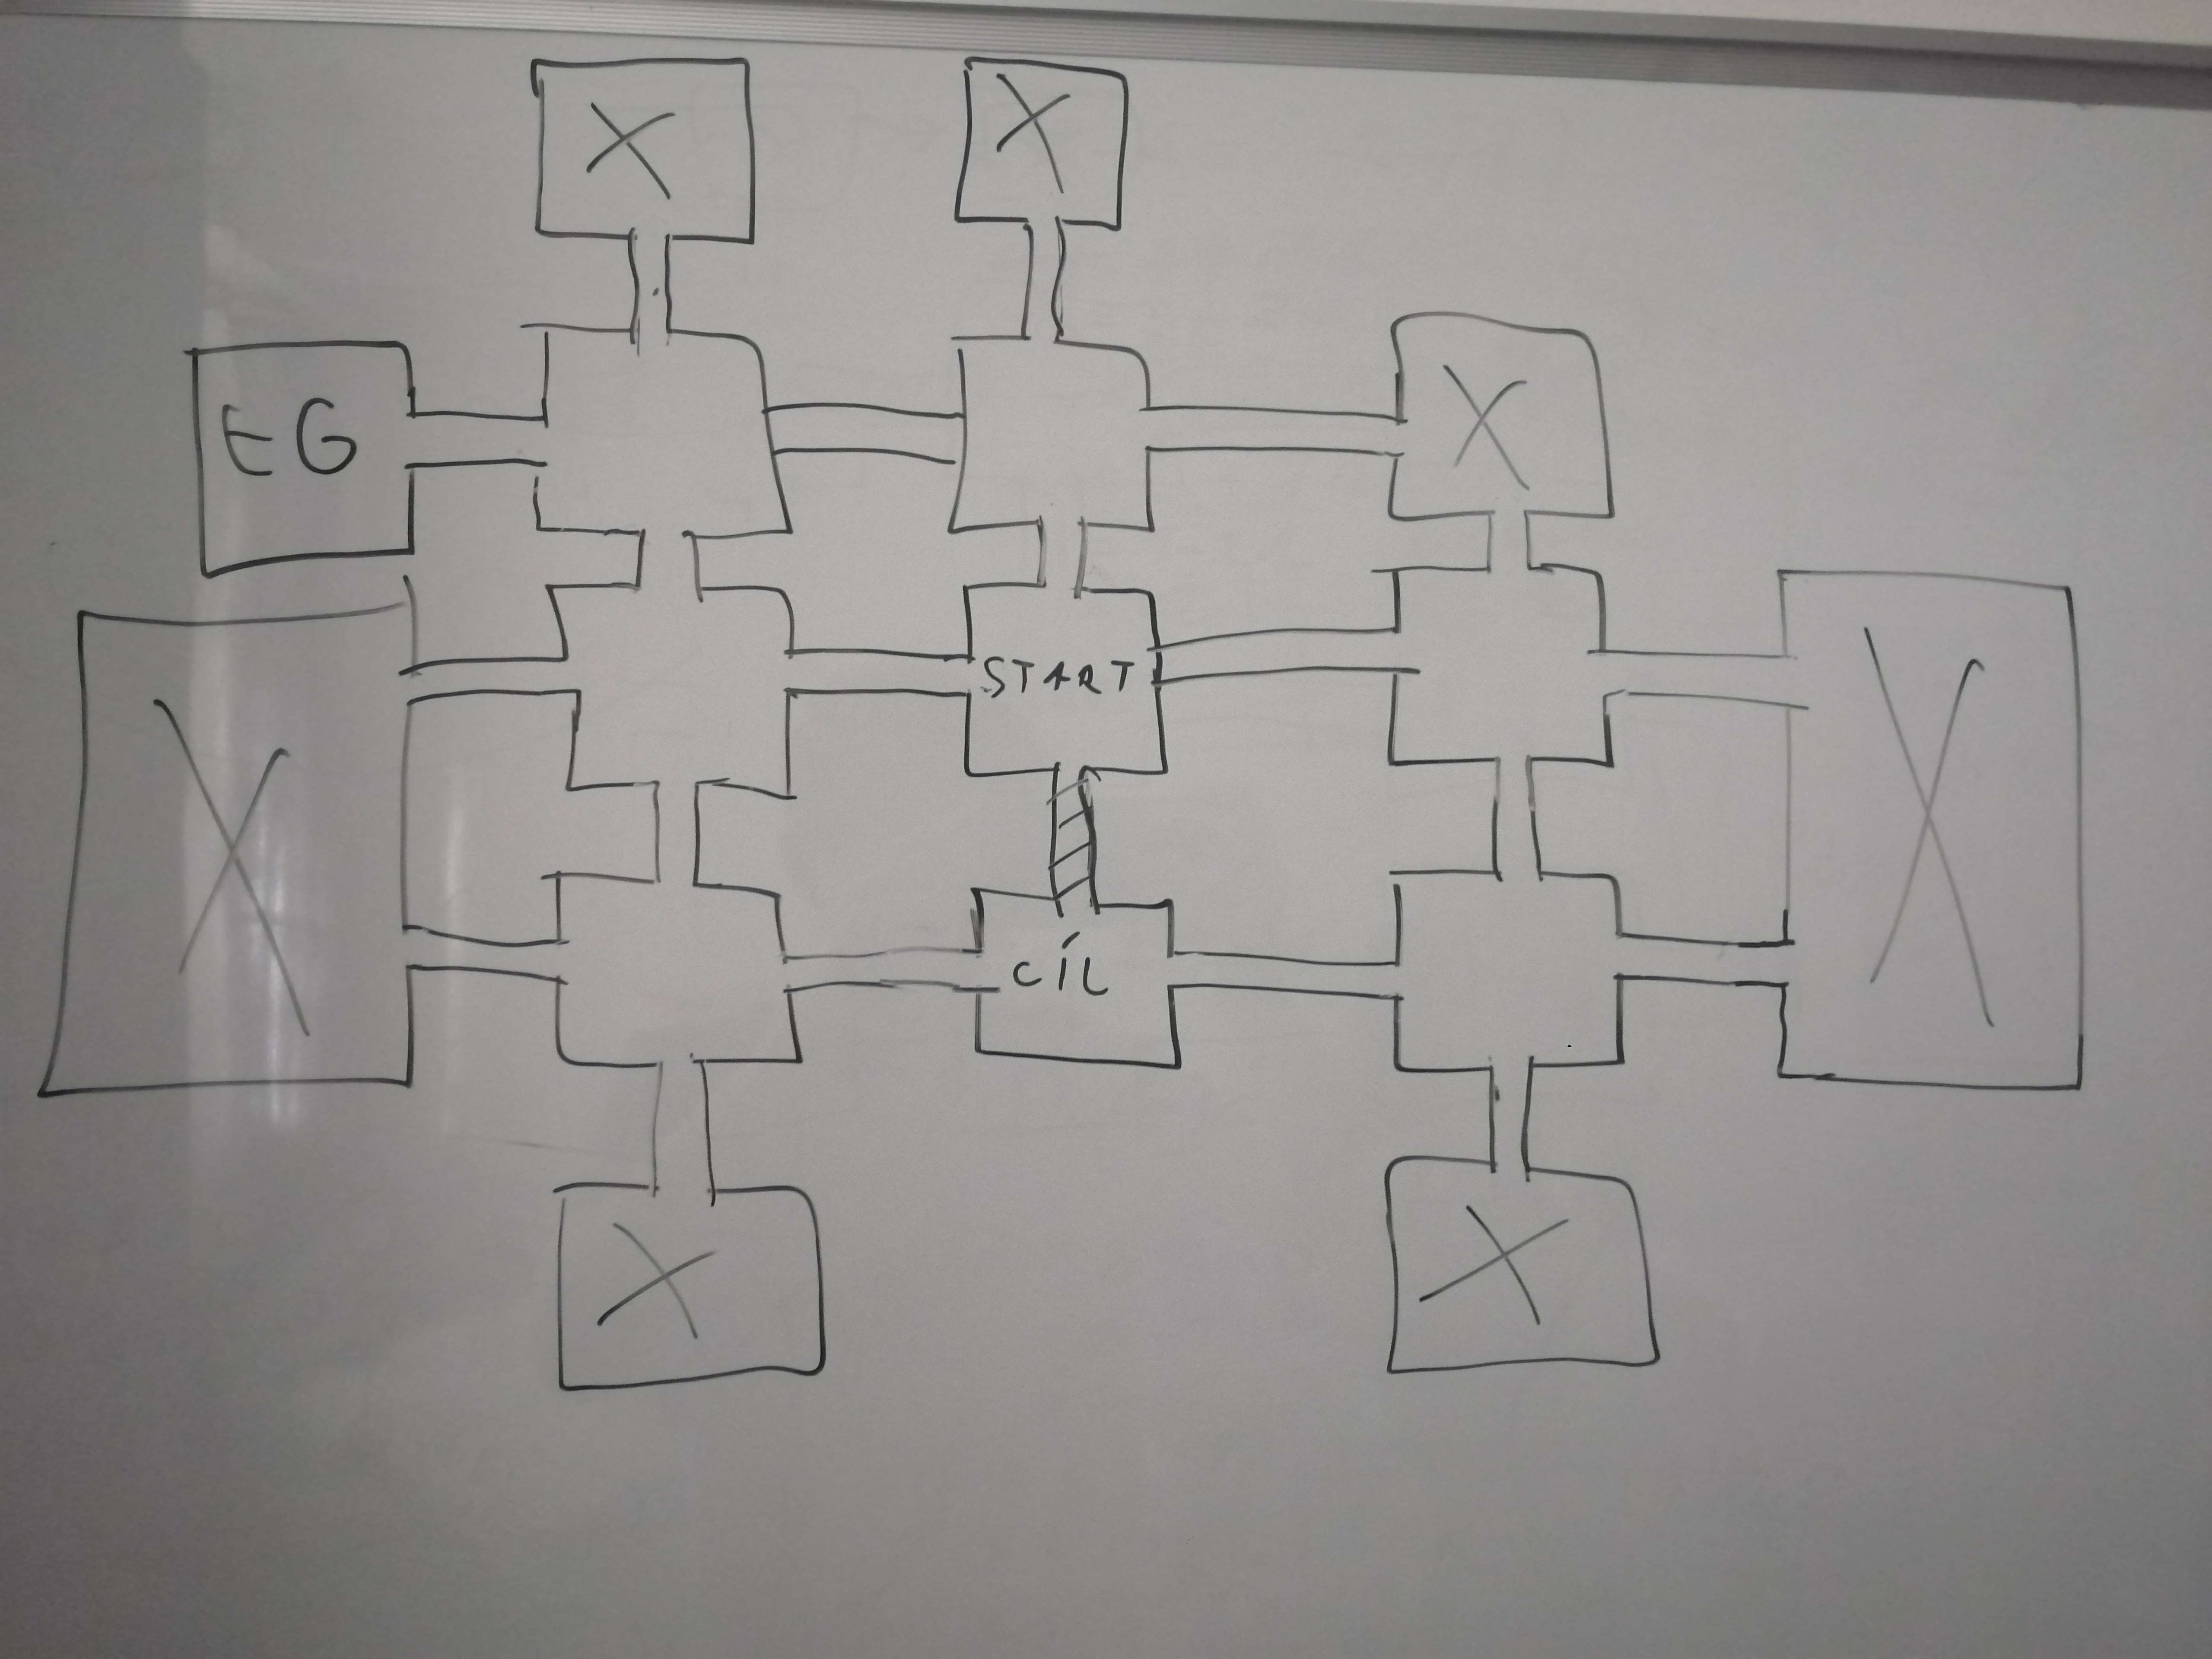 X
X
EG
X
START
X
X
CÍL
X
X